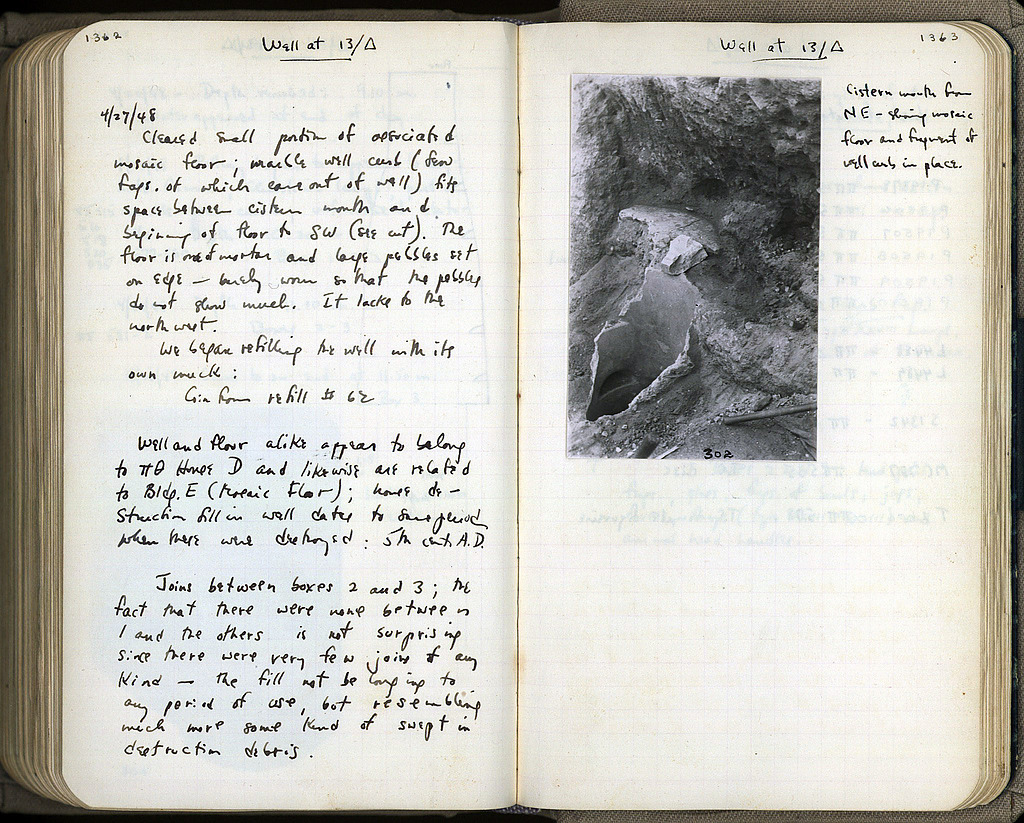 1362
Well at 13/Δ
4/27/48
Cleared small portion of associated
mosaic floor; marble well curb (few
frags. of which came out of well) fits
space between cistern mouth and
beginning of floor to SW (see cut). The
floor is one of mortar and large pebbles set
on edge — worn so that the pebbles
do not show much. It lacks to the
north west.
We began refilling the well with its
own muck:
Coin from refill # 62
Well and floor alike appear to belong
to ΠΘ House D and likewise are related
to Bldg. E (Mosaic Floor); house de-
struction fill in well dates to same period
when these were destroyed: 5th cent. A.D.
Joins between boxes 2 and 3; the
fact that there were none between
1 and the others is not surprising
since there were very few joins of any
kind — the fill not belonging to
any period of use, but resembling
much more some kind of swept in
destruction debris.
1363
Well at 13/Δ
Cistern mouth from
NE - showing mosaic
floor and fragment of
well curb in place.
302